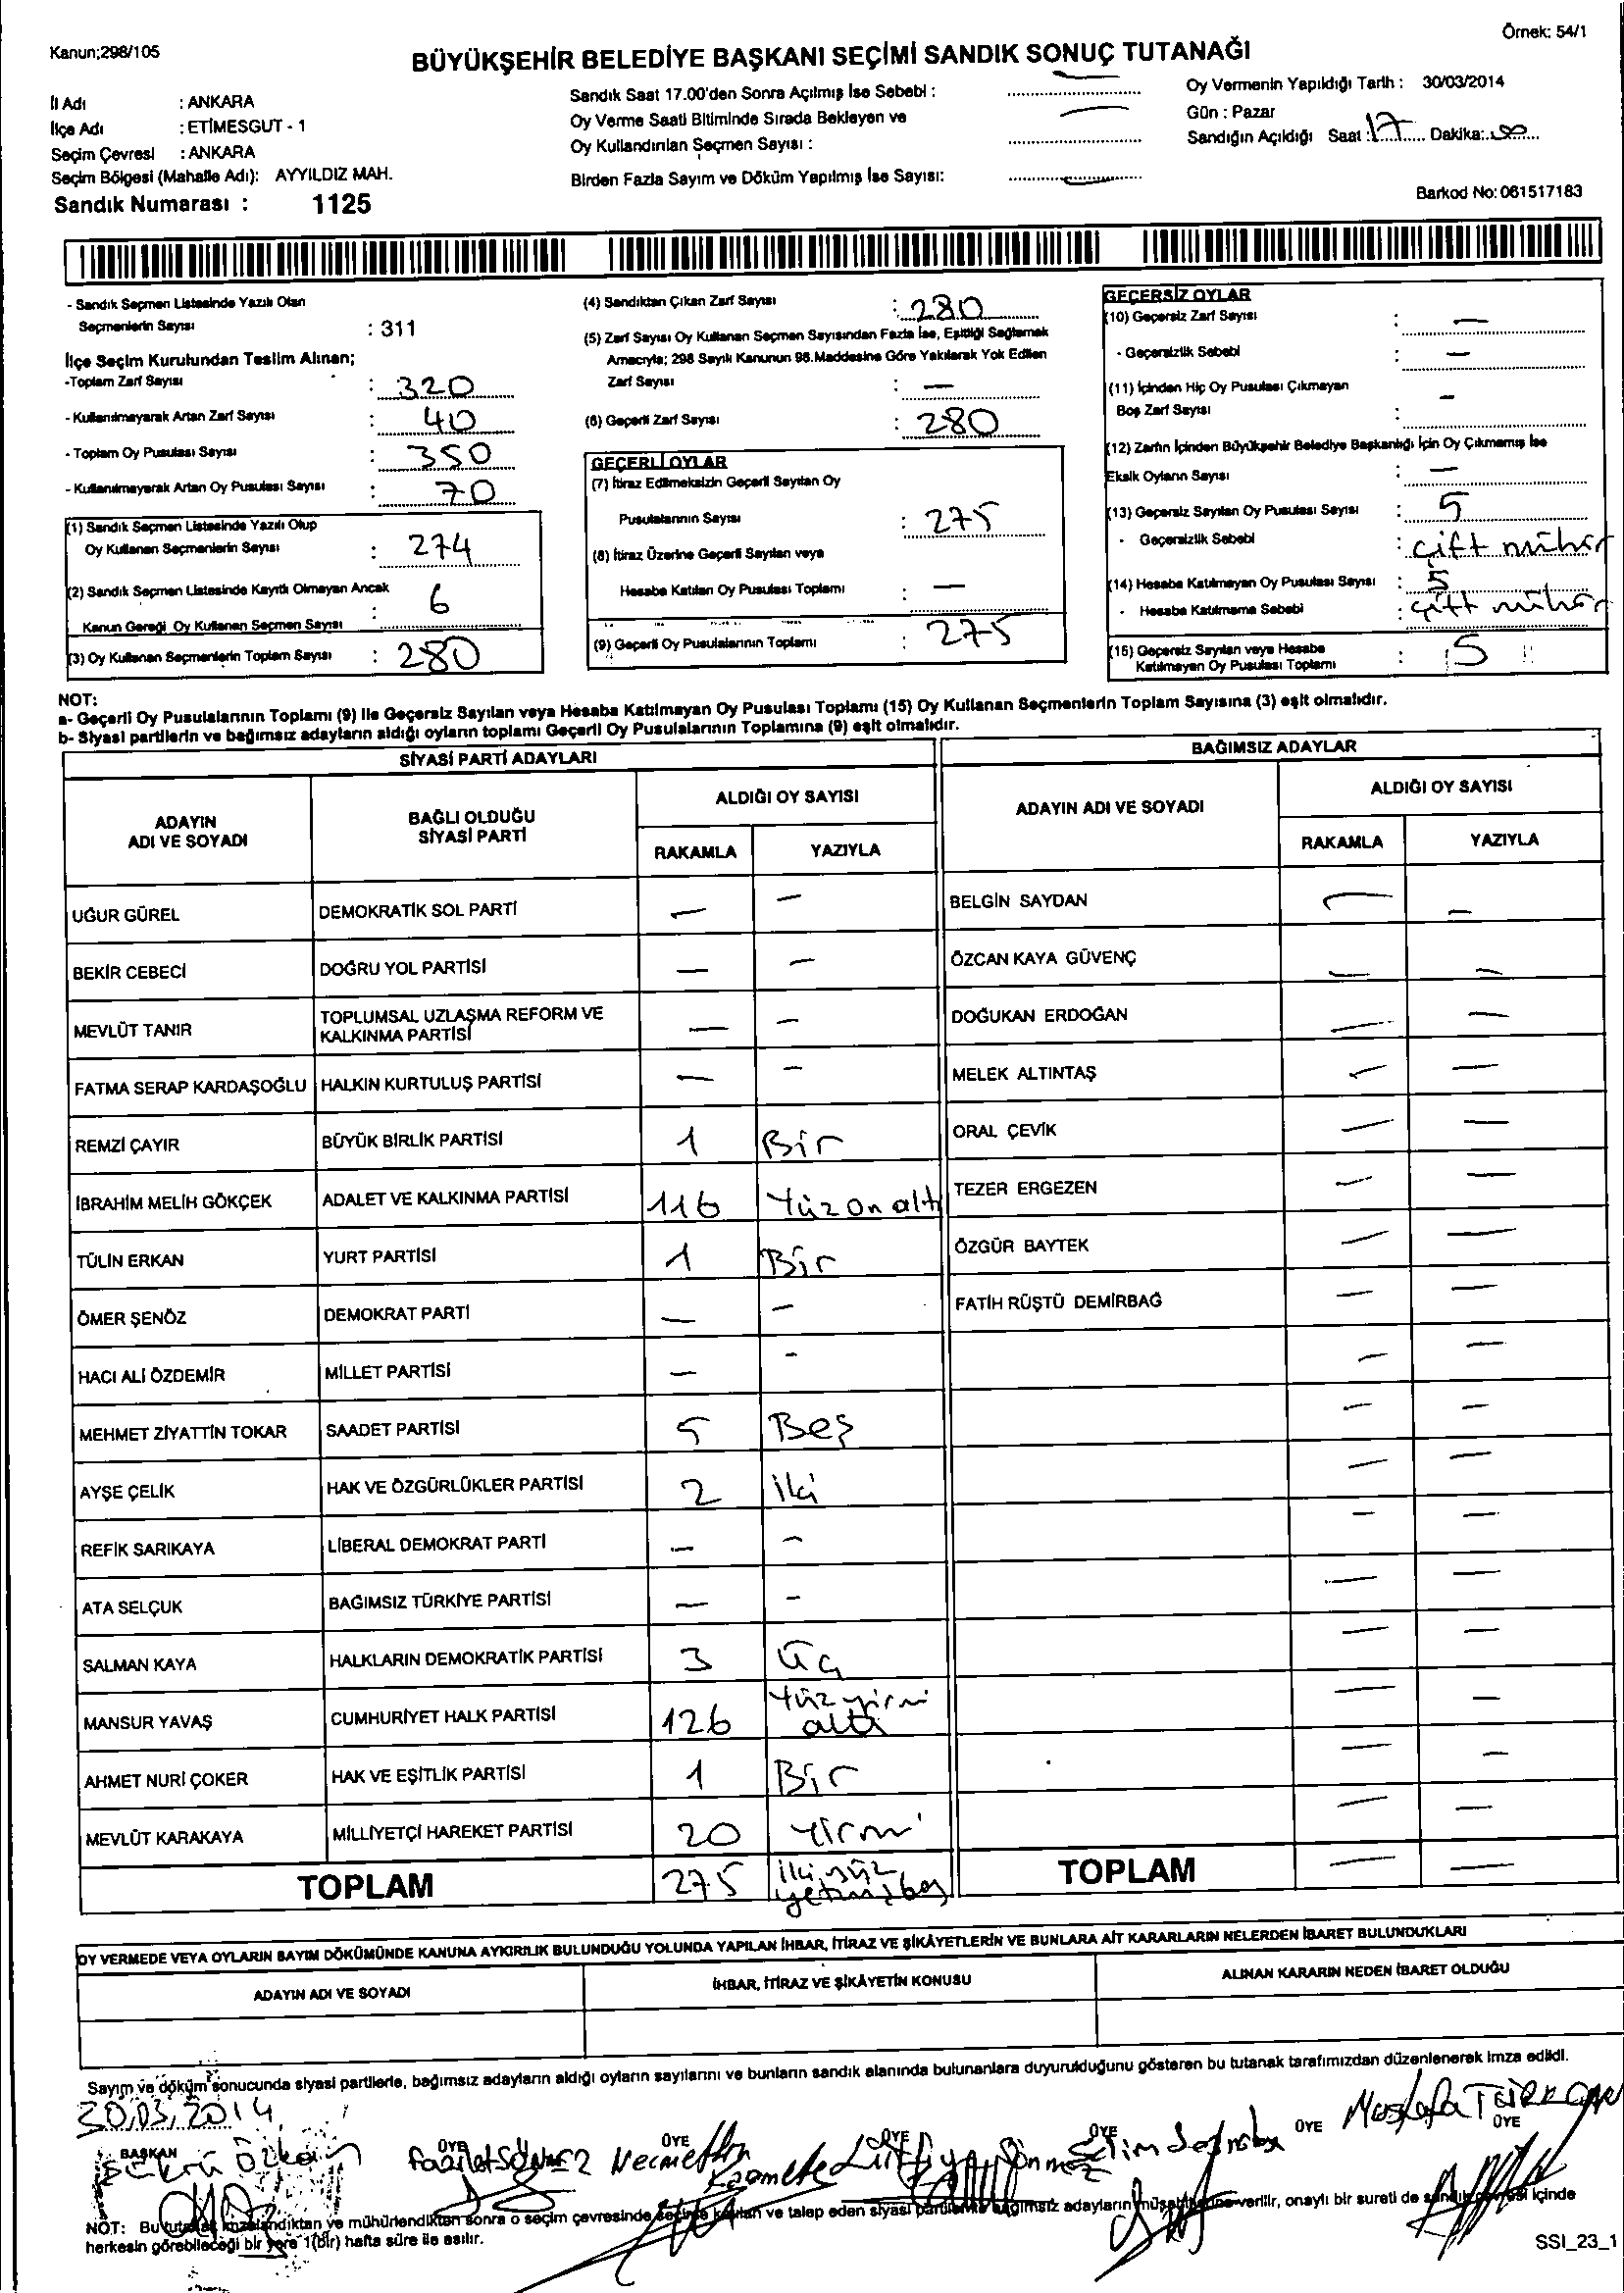 Kanun;298/105
Örnek: 54/1
BÜYÜKŞEHİR BELEDİYE BAŞKANI SEÇİMİ SANDIK SONUÇ TUTANAĞI
İl Adı : ANKARA
İlçe Adı : ETİMESGUT - 1
Seçim Çevresi : ANKARA
Seçim Bölgesi (Mahalle Adı): AYYILDIZ MAH.
Sandık Numarası : 1125
Sandık Saat 17.00'den Sonra Açılmış İse Sebebi :
Oy Verme Saati Bitiminde Sırada Bekleyen ve
Oy Kullandırılan Seçmen Sayısı :
Birden Fazla Sayım ve Döküm Yapılmış İse Sayısı:
Oy Vermenin Yapıldığı Tarih : 30/03/2014
Gün : Pazar
Sandığın Açıldığı Saat :17 Dakika:.00
Barkod No: 061517183
- Sandık Seçmen Listesinde Yazılı Olan
Seçmenlerin Sayısı : 311
İlçe Seçim Kurulundan Teslim Alınan;
-Toplam Zarf Sayısı : 320
- Kullanılmayarak Artan Zarf Sayısı : 40
- Toplam Oy Pusulası Sayısı : 350
- Kullanılmayarak Artan Oy Pusulası Sayısı : 70
(1) Sandık Seçmen Listesinde Yazılı Olup
Oy Kullanan Seçmenlerin Sayısı : 274
(2) Sandık Seçmen Listesinde Kayıtlı Olmayan Ancak
Kanun Gereği Oy Kullanan Seçmen Sayısı : 6
(3) Oy Kullanan Seçmenlerin Toplam Sayısı : 280
(4) Sandıktan Çıkan Zarf Sayısı : 280
(5) Zarf Sayısı Oy Kullanan Seçmen Sayısından Fazla İse, Eşitliği Sağlamak
Amacıyla; 298 Sayılı Kanunun 98.Maddesine Göre Yakılarak Yok Edilen
Zarf Sayısı : —
(6) Geçerli Zarf Sayısı : 280
GEÇERLİ OYLAR
(7) İtiraz Edilmeksizin Geçerli Sayılan Oy
Pusulalarının Sayısı : 275
(8) İtiraz Üzerine Geçerli Sayılan veya
Hesaba Katılan Oy Pusulası Toplamı : —
(9) Geçerli Oy Pusulalarının Toplamı : 275
GEÇERSİZ OYLAR
(10) Geçersiz Zarf Sayısı : —
- Geçersizlik Sebebi : —
(11) İçinden Hiç Oy Pusulası Çıkmayan
Boş Zarf Sayısı : —
(12) Zarfın İçinden Büyükşehir Belediye Başkanlığı İçin Oy Çıkmamış İse
Eksik Oyların Sayısı : —
(13) Geçersiz Sayılan Oy Pusulası Sayısı : 5
- Geçersizlik Sebebi : çift mühür
(14) Hesaba Katılmayan Oy Pusulası Sayısı : 5
- Hesaba Katılmama Sebebi : çift mühür
(15) Geçersiz Sayılan veya Hesaba
Katılmayan Oy Pusulası Toplamı : 5
NOT:
a- Geçerli Oy Pusulalarının Toplamı (9) ile Geçersiz Sayılan veya Hesaba Katılmayan Oy Pusulası Toplamı (15) Oy Kullanan Seçmenlerin Toplam Sayısına (3) eşit olmalıdır.
b- Siyasi partilerin ve bağımsız adayların aldığı oyların toplamı Geçerli Oy Pusulalarının Toplamına (9) eşit olmalıdır.
SİYASİ PARTİ ADAYLARI
ADAYIN ADI VE SOYADI BAĞLI OLDUĞU SİYASİ PARTİ ALDIĞI OY SAYISI
RAKAMLA YAZIYLA
UĞUR GÜREL DEMOKRATİK SOL PARTİ — —
BEKİR CEBECİ DOĞRU YOL PARTİSİ — —
MEVLÜT TANIR TOPLUMSAL UZLAŞMA REFORM VE KALKINMA PARTİSİ — —
FATMA SERAP KARDAŞOĞLU HALKIN KURTULUŞ PARTİSİ — —
REMZİ ÇAYIR BÜYÜK BİRLİK PARTİSİ 1 Bir
İBRAHİM MELİH GÖKÇEK ADALET VE KALKINMA PARTİSİ 116 Yüzonaltı
TÜLİN ERKAN YURT PARTİSİ 1 Bir
ÖMER ŞENÖZ DEMOKRAT PARTİ — —
HACI ALİ ÖZDEMİR MİLLET PARTİSİ — —
MEHMET ZİYATTİN TOKAR SAADET PARTİSİ 5 Beş
AYŞE ÇELİK HAK VE ÖZGÜRLÜKLER PARTİSİ 2 iki
REFİK SARIKAYA LİBERAL DEMOKRAT PARTİ — —
ATA SELÇUK BAĞIMSIZ TÜRKİYE PARTİSİ — —
SALMAN KAYA HALKLARIN DEMOKRATİK PARTİSİ 3 Üç
MANSUR YAVAŞ CUMHURİYET HALK PARTİSİ 126 Yüzyirmi altı
AHMET NURİ ÇOKER HAK VE EŞİTLİK PARTİSİ 1 Bir
MEVLÜT KARAKAYA MİLLİYETÇİ HAREKET PARTİSİ 20 Yirmi
TOPLAM 275 ikiyüz yetmişbeş
BAĞIMSIZ ADAYLAR
ADAYIN ADI VE SOYADI ALDIĞI OY SAYISI
RAKAMLA YAZIYLA
BELGİN SAYDAN — —
ÖZCAN KAYA GÜVENÇ — —
DOĞUKAN ERDOĞAN — —
MELEK ALTINTAŞ — —
ORAL ÇEVİK — —
TEZER ERGEZEN — —
ÖZGÜR BAYTEK — —
FATİH RÜŞTÜ DEMİRBAĞ — —
TOPLAM — —
OY VERMEDE VEYA OYLARIN SAYIM DÖKÜMÜNDE KANUNA AYKIRILIK BULUNDUĞU YOLUNDA YAPILAN İHBAR, İTİRAZ VE ŞİKÂYETLERİN VE BUNLARA AİT KARARLARIN NELERDEN İBARET BULUNDUKLARI
ADAYIN ADI VE SOYADI İHBAR, İTİRAZ VE ŞİKÂYETİN KONUSU ALINAN KARARIN NEDEN İBARET OLDUĞU
Sayım ve döküm sonucunda siyasi partilerle, bağımsız adayların aldığı oyların sayılarını ve bunların sandık alanında bulunanlara duyurulduğunu gösteren bu tutanak tarafımızdan düzenlenerek imza edildi.
30.03.2014
BAŞKAN ÜYE ÜYE ÜYE ÜYE ÜYE ÜYE
Şükrü Özkan Fazilet Sönmez Necmettin Lütfiye Sönmez Mustafa
NOT: Bu tutanak imzalandıktan ve mühürlendikten sonra o seçim çevresinde seçime katılan ve talep eden siyasi partilerle bağımsız adayların müşahitlerine verilir, onaylı bir sureti de sandık çevresi içinde
herkesin görebileceği bir yere 1(bir) hafta süre ile asılır.
SSI_23_1